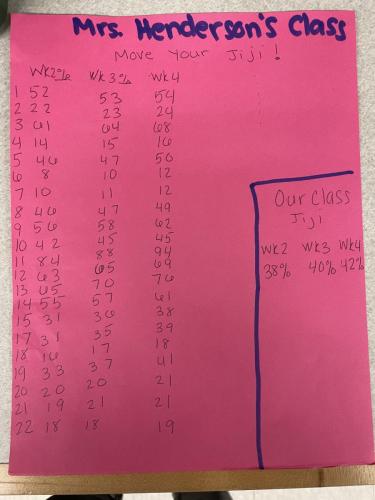 Mrs. Henderson's Class
Move Your Jiji!
Wk2% Wk3% Wk4
1 52 53 54
2 22 23 24
3 61 64 68
4 14 15 16
5 46 47 50
6 8 10 12
7 10 11 12
8 46 47 49
9 56 58 62
10 42 45 45
11 84 88 94
12 63 65 69
13 65 70 76
14 55 57 61
15 31 36 38
17 31 35 39
18 16 17 18
19 33 37 41
20 20 20 21
21 19 21 21
22 18 18 19
Our Class
Jiji
Wk2 Wk3 Wk4
38% 40% 42%